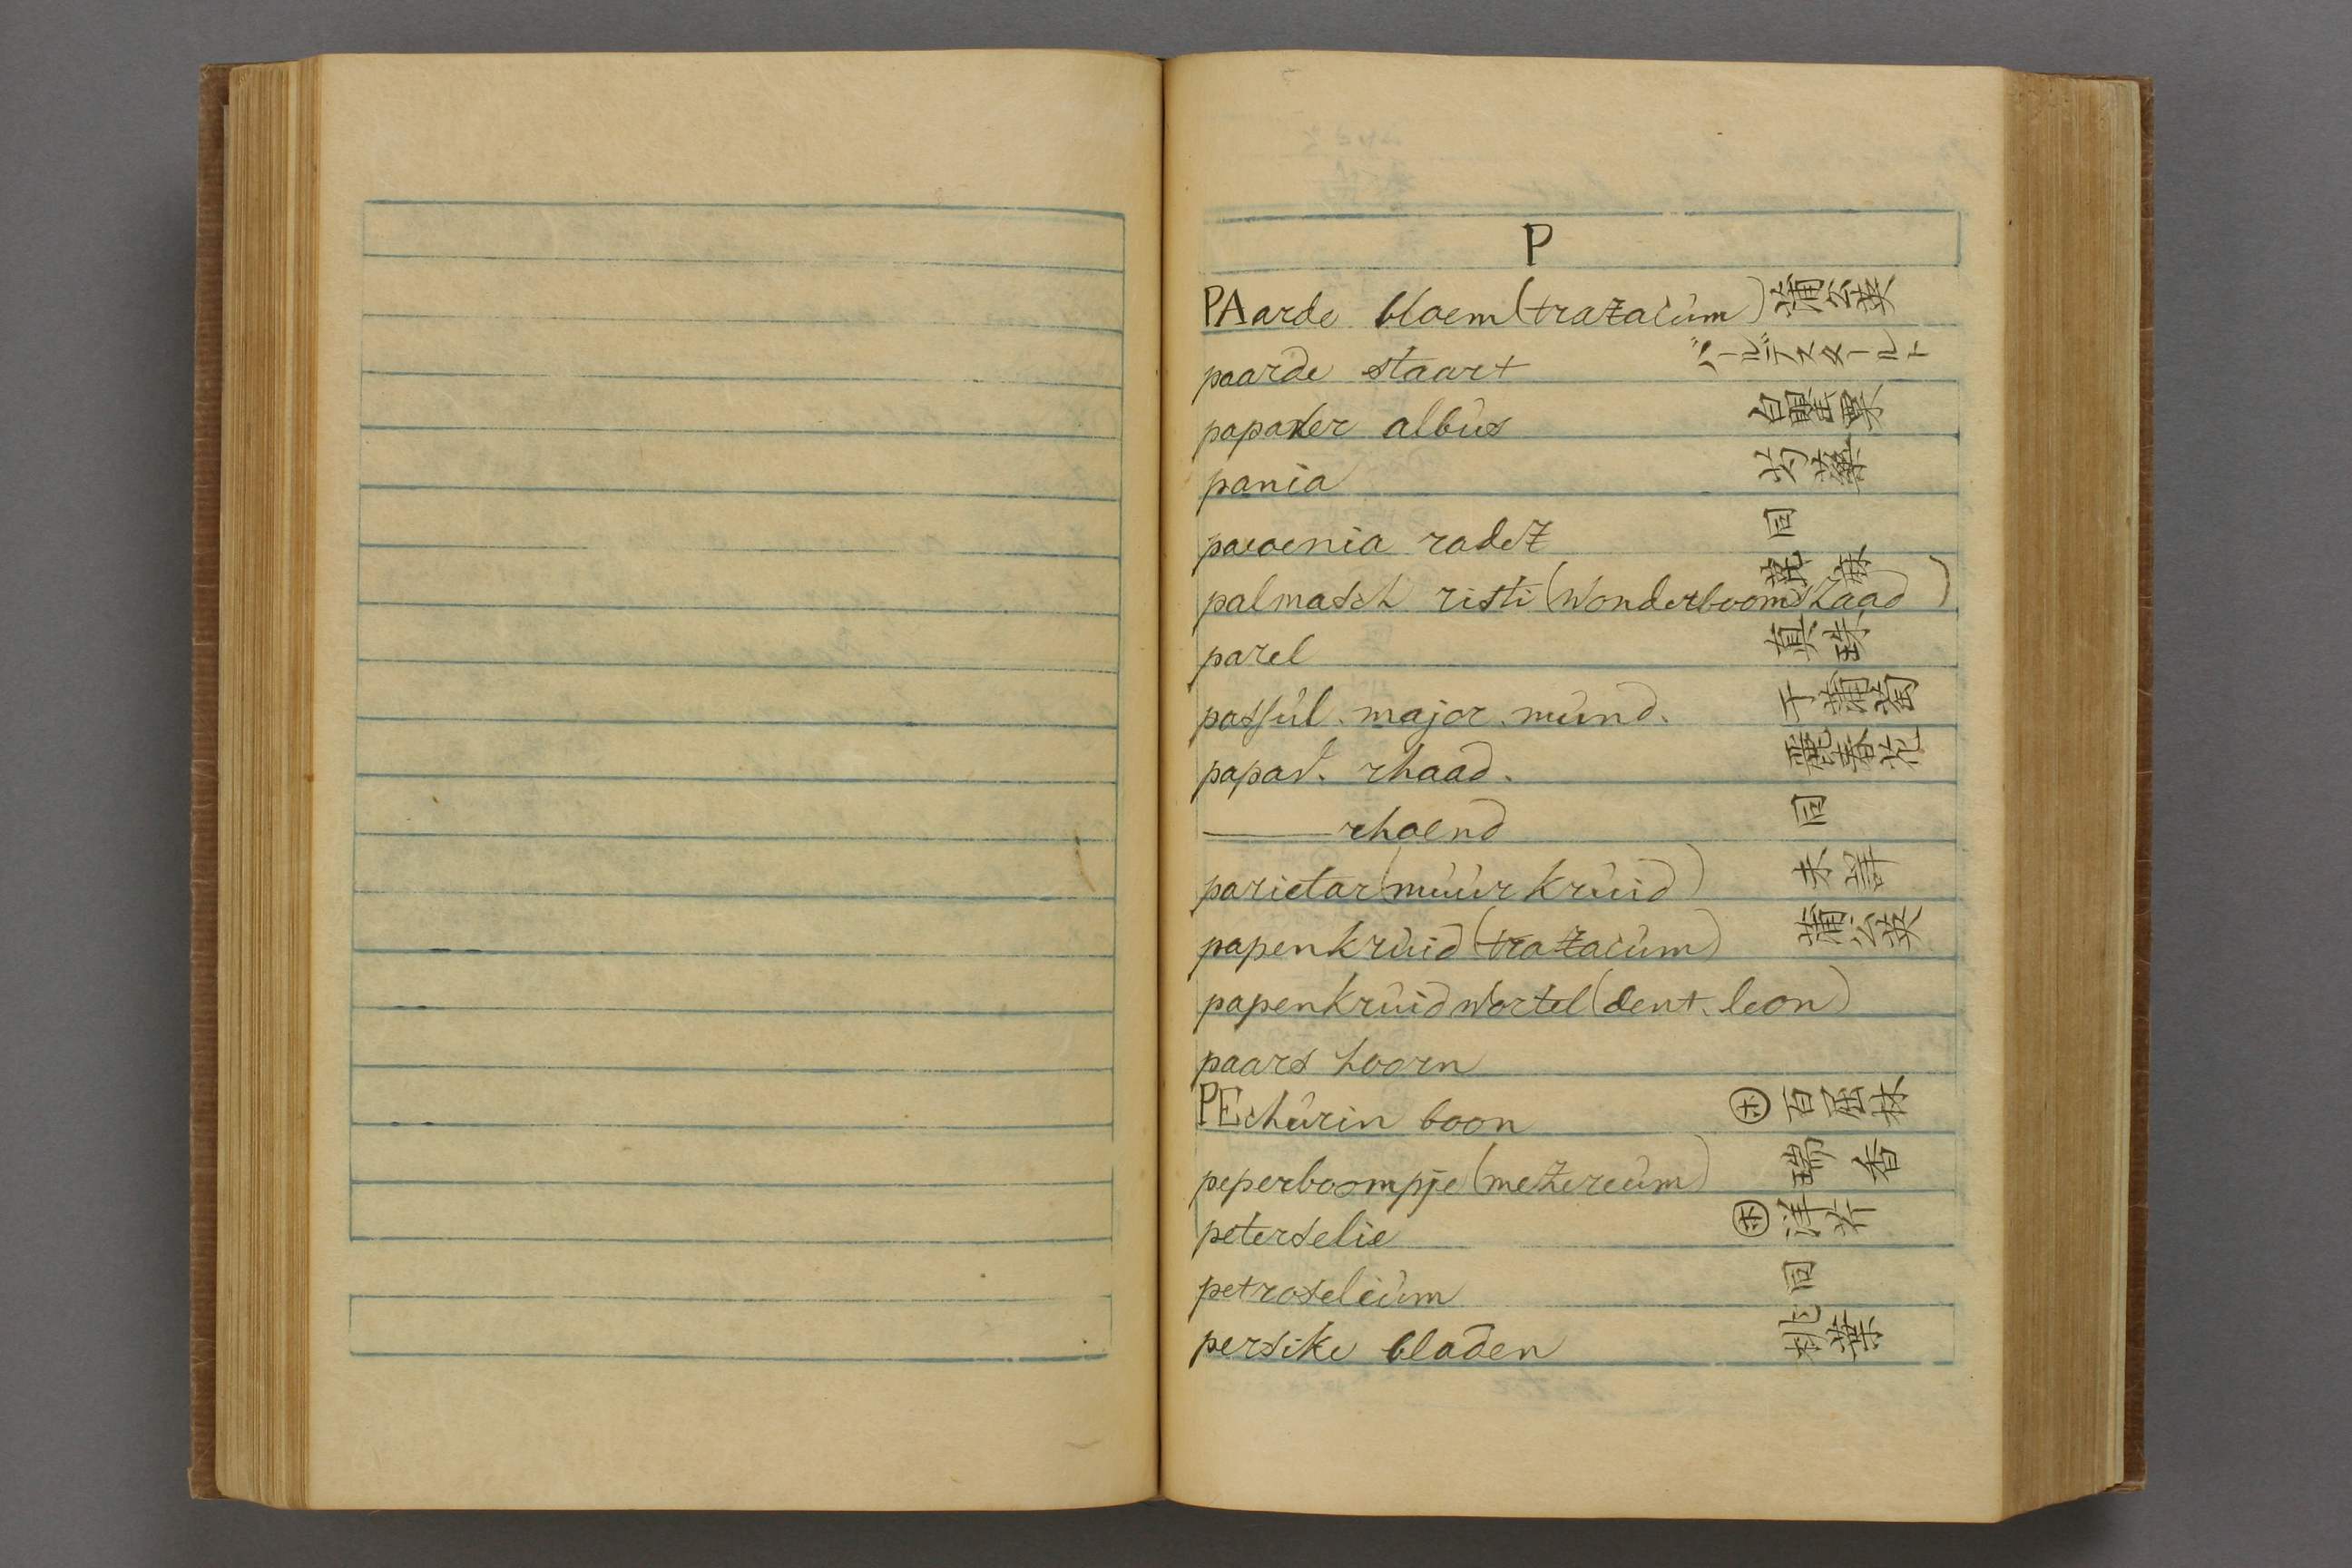 P
PAarde bloem (trazacùm) 蒲公英
paarde staart パールデスタールト
papaver albùs 白罌粟
pania 芍薬
paeoenia radix 同
palmasch risti (wonderbooms zaad) 蓖麻
parel 真珠
passùl. major. mùnd. 干蒲萄
papav. rhaad. 麗春花
——— rhoend 同
parietar (mùùr krùid) 未詳
papenkrùid (trazacùm) 蒲公英
papenkrùid wortel (dent. leon)
paars hoorn
PEchùrin boon ㋭ 百屈林
peperboompje (mezereùm) 瑞香
peterselie ㋭ 洋芹
petroseliùm 同
persike bladen 桃葉